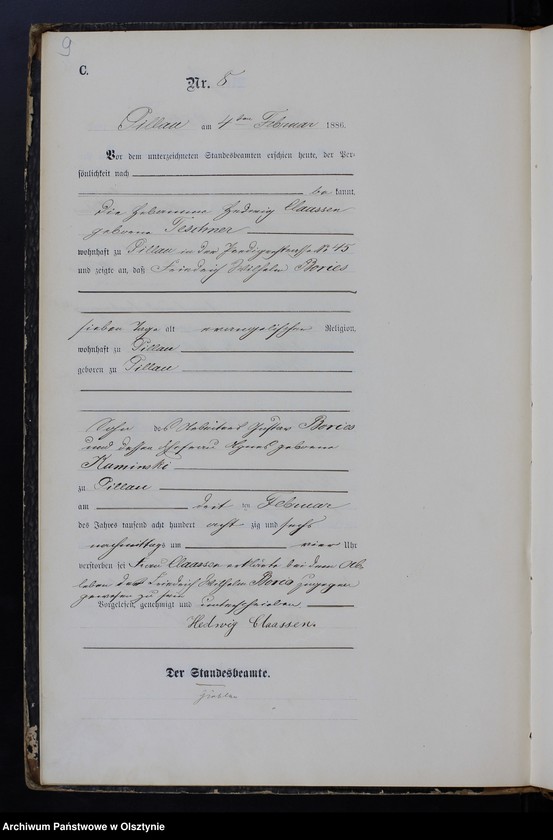 9
C.
Nr. 8
Pillau am 4ten Februar 1886.
Vor dem unterzeichneten Standesbeamten erschien heute, der Per-
sönlichkeit nach
be kannt,
die Hebamme Hedwig Claassen
geborene Teschner
wohnhaft zu Pillau in der Predigerstraße № 45
und zeigte an, daß Friedrich Wilhelm Bories
sieben Tage alt evangelischer Religion,
wohnhaft zu Pillau
geboren zu Pillau
Sohn des Arbeiters Gustav Bories
und dessen Ehefrau Agnes geborene
Kaminski
zu Pillau
am Februar
des Jahres tausend acht hundert acht zig und sechs
nachmittags um vier Uhr
verstorben sei Frau Claassen erklärte bei dem Ab-
leben des Friedrich Wilhelm Bories zugegen
gewesen zu sein
Vorgelesen, genehmigt und unterschrieben
Hedwig Claassen.
Der Standesbeamte.
Archiwum Państwowe w Olsztynie